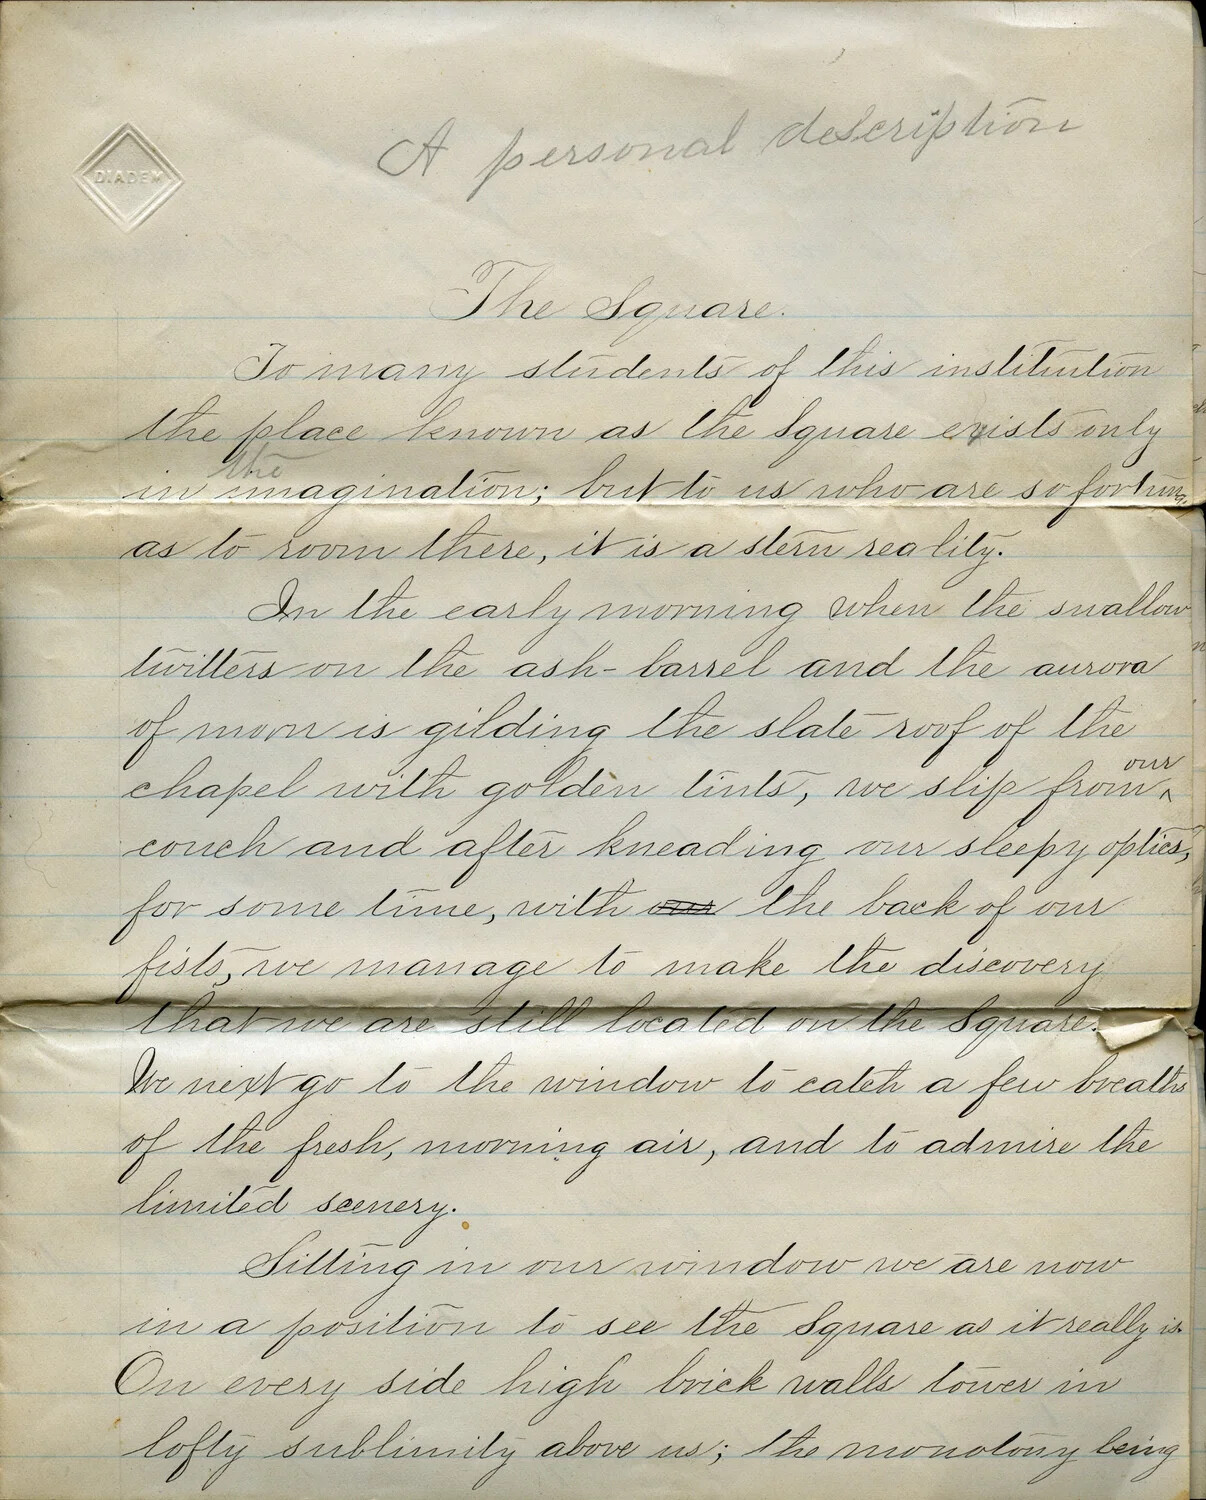 DIADEM
A personal description
The Square.
To many students of this institution
the place known as the Square exists only
the
in imagination; but to us who are so
as to room there, it is a stern reality.
In the early morning when the swallow
twitters on the ash-barrel and the aurora
of morn is gilding the slate roof of the
our
chapel with golden tints, we slip from ^
couch and after kneading our sleepy optics,
for some time, with our the back of our
fists, we manage to make the discovery
that we are still located on the Square.
We next go to the window to catch a few breaths
of the fresh, morning air, and to admire the
limited scenery.
Sitting in our window we are now
in a position to see the Square as it really is.
On every side high brick walls tower in
lofty sublimity above us; the monotony being